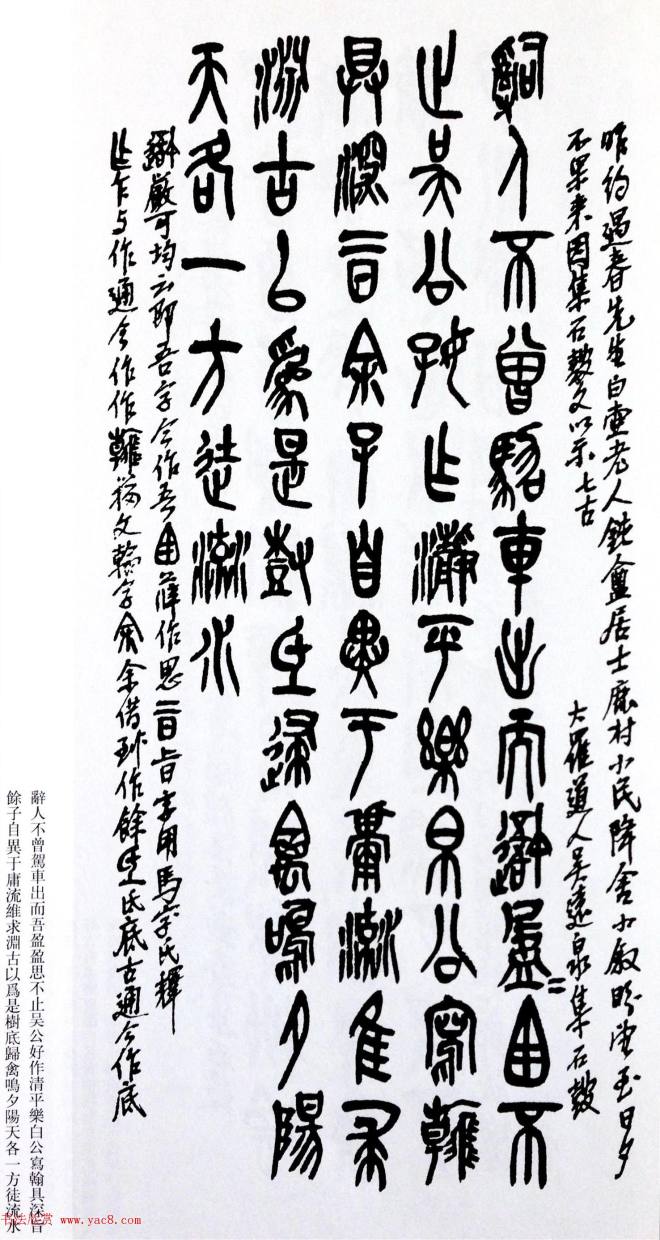 昨約過春先生白壺老人鈍盦居士鹿村小民降舍小叙盼望至日夕
不果來因集石鼓文以示七古
大羅道人吳遠泉集石鼓
辭人不曾駕車出而吾盈=思不
止吳公好作瀞平樂帛公寫翰
具深旨余子自異于庸流隹求
淵古以爲是樹氐歸禽鳴夕陽
天各一方徒流水
嚴可均云即吾字今作吾甶薛作思旨旨字用馬宗氏釋
乍与作通今作作翰籀文翰字余借作餘氐氐底古通今作底
辭人不曾駕車出而吾盈盈思不止吳公好作清平樂白公寫翰具深旨
餘子自異于庸流維求淵古以爲是樹底歸禽鳴夕陽天各一方徒流水
书法欣赏 www.yac8.com